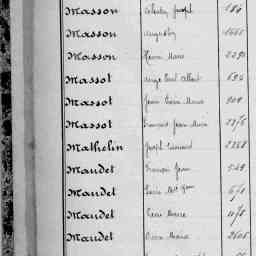 Masson Célestin Joseph 186
Masson Augustin
Masson Pierre Marie 2291
Massot Ange Paul Albert 694
Massot Jean Pierre Marie 909
Massot François Jean Marie 2376
Mathelin Joseph 2258
Maudet François Jean 549
Maudet Louis Jean 670
Maudet Pierre Marie 1078
Maudet Pierre Marie 2605